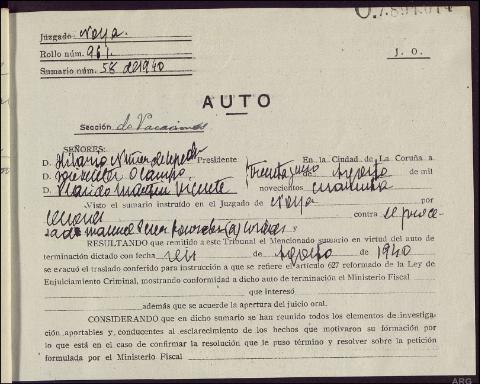 0.7894.014
Juzgado Noya.
Rollo núm. 961.
Sumario núm. 58 de 1940
J. O.
AUTO
Sección de Vacaciones
SEÑORES:
D. Hilario Núñez de Cepeda Presidente
D. Ocampo
D. Plácido Martín Vicente
En la Ciudad de La Coruña a
Treinta y uno de Agosto de mil
novecientos cuarenta
Visto el sumario instruido en el Juzgado de Noya por
contra el proce-
sado Manuel Pérez (a)
RESULTANDO que remitido a este Tribunal el Mencionado sumario en virtud del auto de
terminación dictado con fecha seis de Agosto de 1940
se evacuó el traslado conferido para instrucción a que se refiere el artículo 627 reformado de la Ley de
Enjuiciamiento Criminal, mostrando conformidad a dicho auto de terminación el Ministerio Fiscal
que interesó
además que se acuerde la apertura del juicio oral.
CONSIDERANDO que en dicho sumario se han reunido todos los elementos de investiga-
ción aportables y conducentes al esclarecimiento de los hechos que motivaron su formación por
lo que está en el caso de confirmar la resolución que le puso término y resolver sobre la petición
formulada por el Ministerio Fiscal
ARG